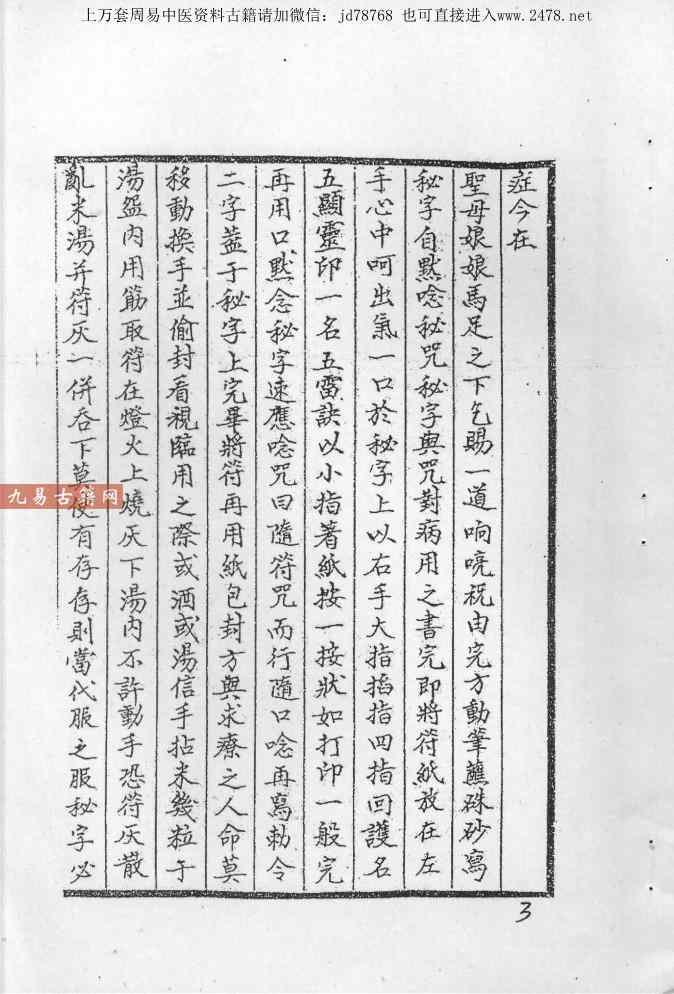 上万套周易中医资料古籍请加微信：jd78768 也可直接进入www.2478.net
症今在
聖母娘娘馬足之下乞賜一道响喨祝由完方動筆蘸硃砂寫
秘字自黙唸秘咒秘字與咒對病用之書完即將符紙放在左
手心中呵出氣一口於秘字上以右手大指掐指四指回護名
五顯靈印一名五雷訣以小指著紙按一按狀如打印一般完
再用口黙念秘字速應唸咒曰隨符咒而行隨口唸再寫勅令
二字蓋于秘字上完畢將符再用紙包封方與求療之人命莫
移動換手並偷封看視臨用之際或酒或湯信手拈米幾粒于
湯盌内用筯取符在燈火上燒灰下湯内不許動手恐符灰散
亂米湯并符灰一併吞下莫使有存存則當代服之服秘字必
九易古籍网
3